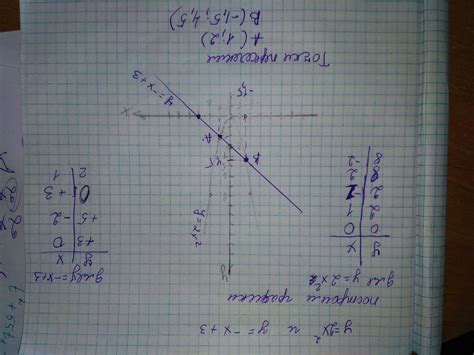 y=2x² и y=-x+3
построим графики
для y=2x²
x | y
0 | 0
1 | 2
2 | 8
-2 | 8
для y=-x+3
x | y
0 | +3
-2 | +5
+3 | 0
1 | 2
y
y=2x²
B
4,5
A
y=-x+3
x
-1,5
Точки пересечения
A(1; 2)
B(-1,5; 4,5)